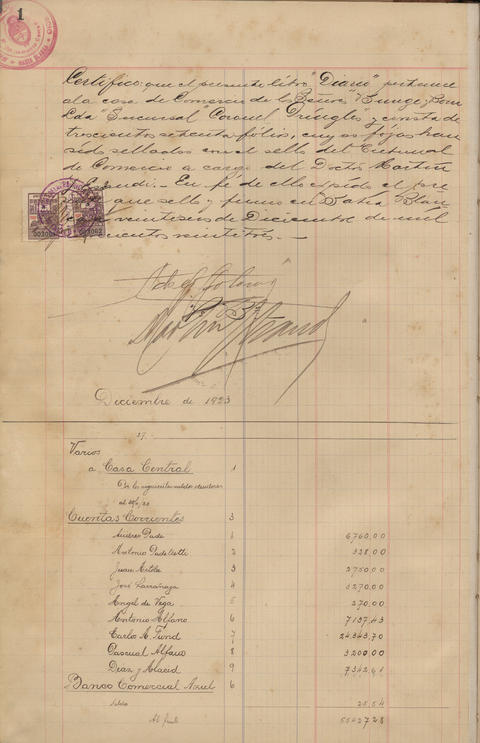 1
Certifico: que el presente libro "Diario" pertenece
a la casa de Comercio de los Señores "Bunge y Born
Lda" Sucursal "Coronel Pringles" y consta de
trescientos setenta folios, cuyas fojas han
sido selladas con el sello del Tribunal
de Comercio a cargo del Doctor Martin
En fe de ello expido el pre
que sello y firmo en Bahia Blan
veintiseis de Diciembre de mil
veintitres.
Diciembre de 1923
27
Varios
a Casa Central 1
De los siguientes saldos deudores
Cuentas Corrientes 3
1 6760,00
Antonio 2 328,00
Juan 3 2750,00
José Larrañaga 4 3270,00
Angel de Vega 5 270,00
Antonio Alfano 6 7137,43
Carlos A. Fund 7 24343,70
Pascual Alfano 8 3200,00
Diaz y 9 7342,61
Banco Comercial Azul 6
Saldo 25,54
Al frente 55427,28